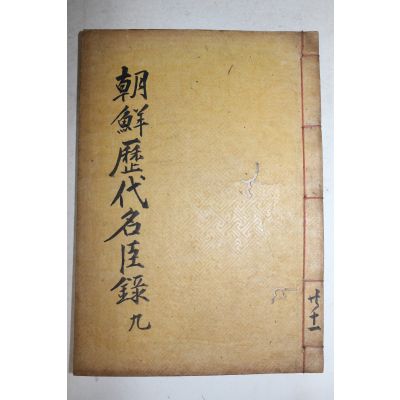 朝鮮歷代名臣錄 九
共十一